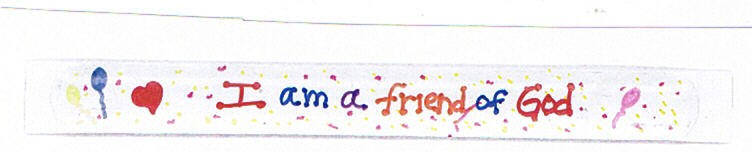 I am a friend of God